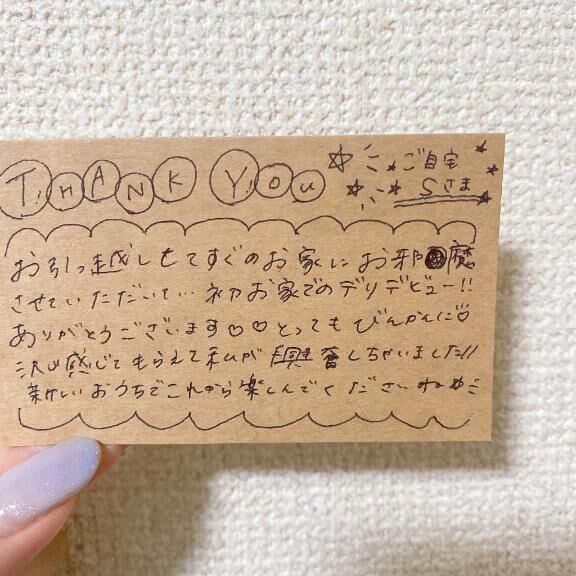 THANK YOU
ご自宅
Sさま
お引っ越しもてすぐのお家にお邪魔
させていただいて… 初お家でのデリデビュー!!
ありがとうございます♡♡とってもびんかんに♡
沢山感じてもらえて私が興奮しちゃいました!!
新しいおうちでこれから楽しんでくださいね